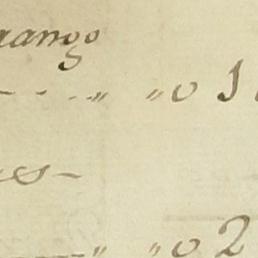 ango
- - - " " 0 1
es-
" " 0 2